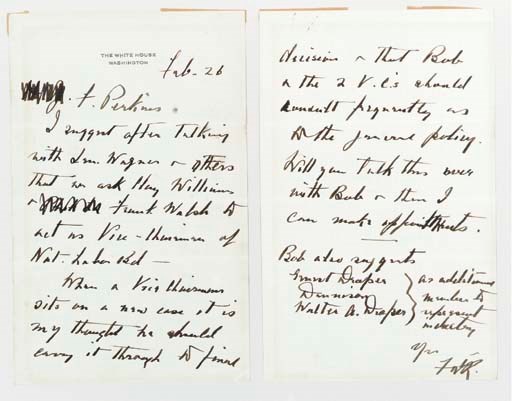 THE WHITE HOUSE
WASHINGTON
Feb - 26
F. Perkins
I suggest after talking
with Sen. Wagner & others
that we ask Hay Williams
& Frank Walsh to
act as Vice-Chairmen of
Nat. Labor Bd -
When a Vice Chairman
sits on a new case it is
my thought he should
carry it through to final
decision & that Bob
& the 2 V.C.'s should
consult frequently as
to the general policy.
Will you talk this over
with Bob & then I
can make appointments.
Bob also suggests
Ernest Draper
Dennison
Walter A. Draper
as additional
member to
represent
industry
Yrs
FDR.